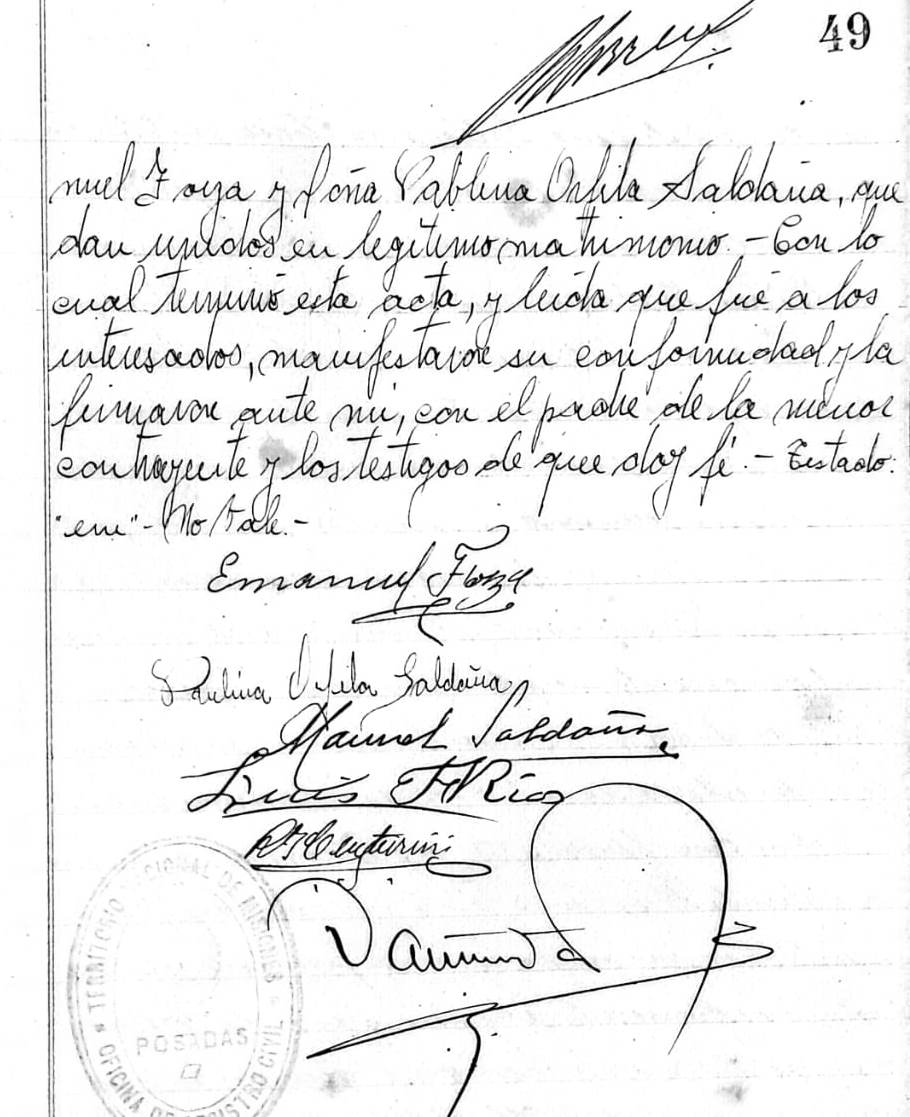 49
nuel Foza y doña Pablina Orfila Saldaña, que
dan unidos en legitimo matrimonio. - Con lo
cual terminó esta acta, y leida que fué a los
interesados, manifestaron su conformidad y la
firmaron ante mi, con el padre de la menor
contrayente y los testigos de que doy fé. - Testado:
"en" - No Vale. -
Emanuel Foza
Paulina Orfila Saldaña
Manuel Saldaña
Luis F Rios
TERRITORIO NACIONAL DE MISIONES
POSADAS
OFICINA DE REGISTRO CIVIL